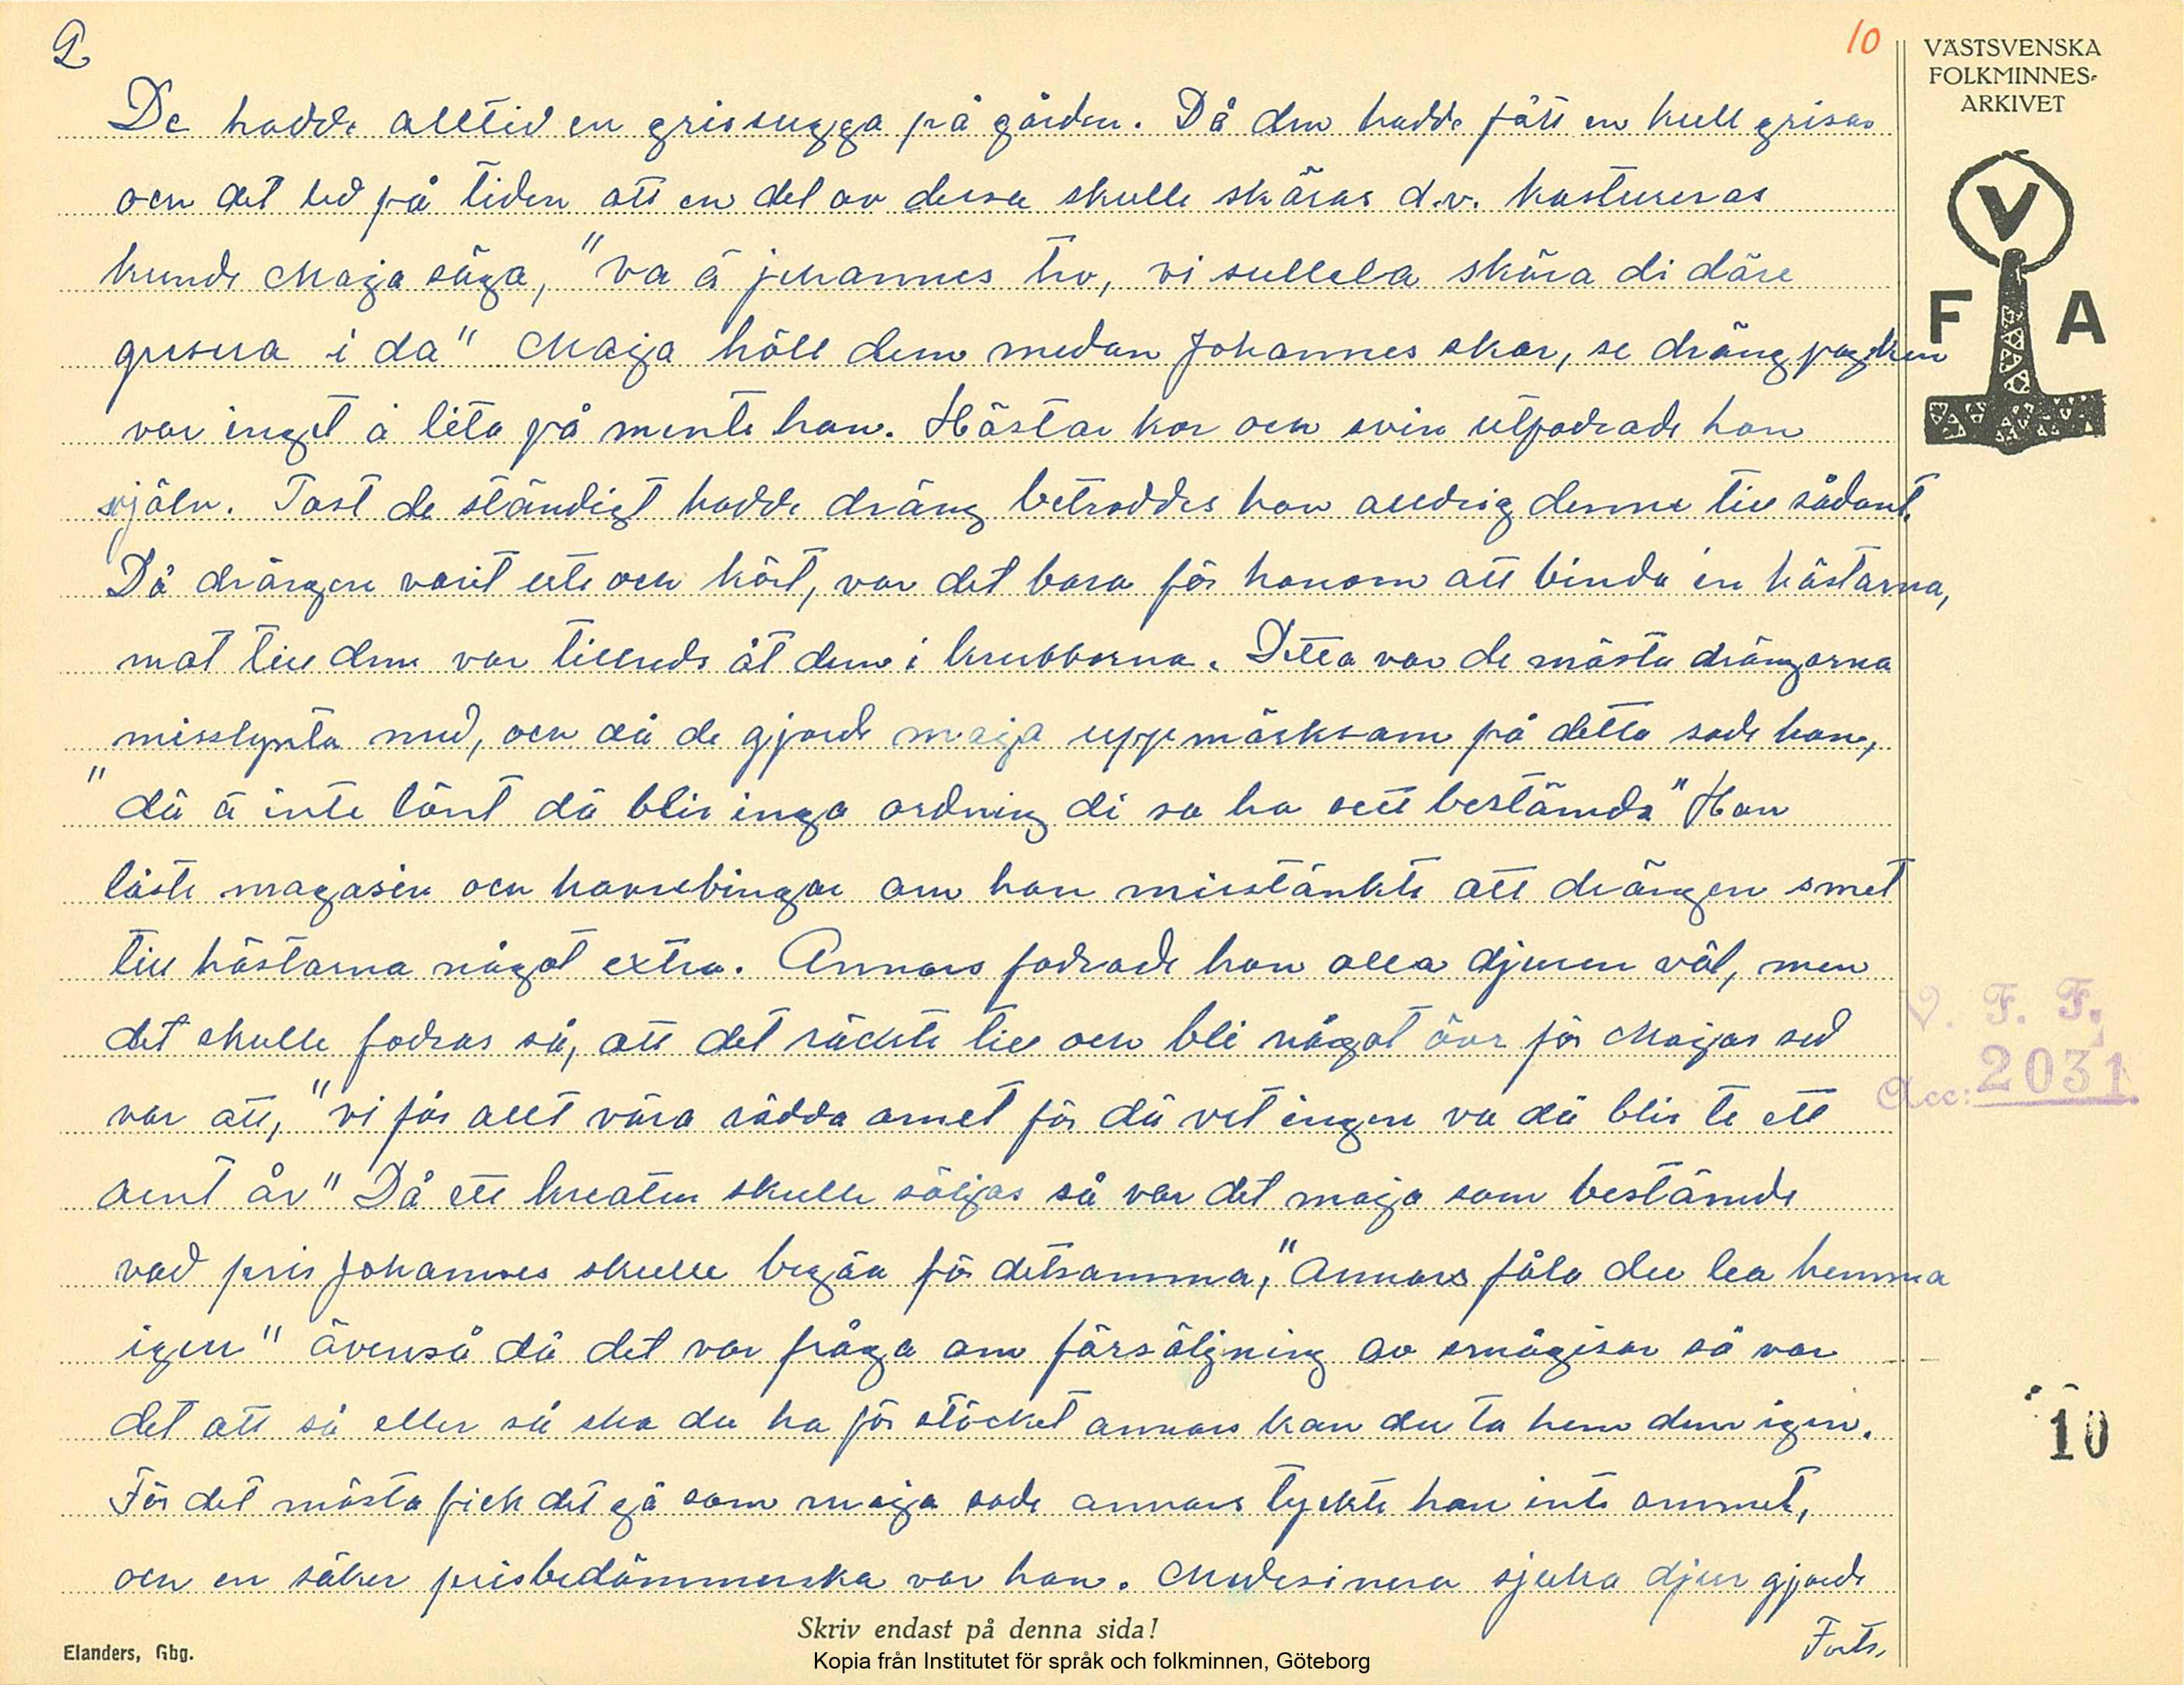 2
10
VÄSTSVENSKA
FOLKMINNES-
ARKIVET
V
F A
De hadde alltid en grissugga på gården. Då den hadde fått en kull grisar
och det led på tiden att en del av dessa skulle skäras d.v. kastureras
kunde Maja säga, "va ä johannes tro, vi sullela skära di däre
grisua i da" Maja höll dem medan Johannes skar, se dräng pojken
var inget å lita på mente hon. Hästar kor och svin utfodrade hon
själv. Fast de ständigt hadde dräng betroddes hon alldrig denne till sådant.
Då drängen varit ute och kört, var det bara för honom att binda in hästarna,
mat till dem var tillreds åt dem i krubborna. Detta var de mästa drängarna
misslynta med, och då de gjorde maja uppmärksam på detta sade hon,
"dä ä inte lönt dä blir inga ordning di sa ha sett bestämda" Hon
låste magasin och havrebingar om hon misstänkte att drängen smet
till hästarna något extra. Annars fodrade hon alla djuren väl, men
det skulle fodras så, att det räckte till och bli något övr för Majas sed
var att, "vi får allt våra rädda omet för dä vet ingen va dä blir te ett
aent år" Då ett kreatur skulle säljas så var det maja som bestämde
vad pris Johannes skulle begära för detsamma, "Annars fåla du lea hemma
igen" ävenså då det var fråga om försäljning av smågrisar så var
det att så eller så ska du ha för stöcket annars kan du ta hem dem igen.
För det mästa fick det gå som maja sade annars tyckte hon inte ommet,
och en säker prisbedömmerska var hon. Medesinera sjuka djur gjorde
Forts.
V. F. F.
Acc: 2031
10
Skriv endast på denna sida!
Elanders, Gbg.
Kopia från Institutet för språk och folkminnen, Göteborg